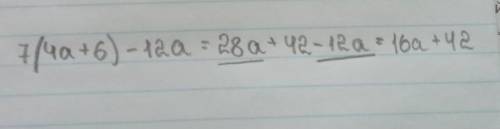 7(4a+6)-12a = 28a+42-12a = 16a+42